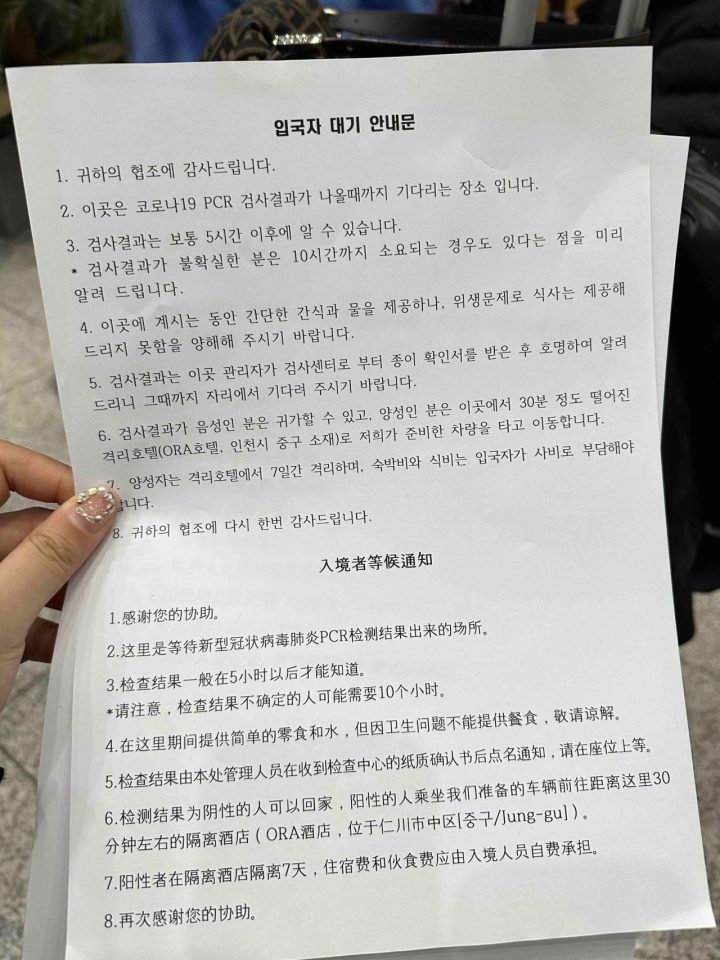 입국자 대기 안내문
1. 귀하의 협조에 감사드립니다.
2. 이곳은 코로나19 PCR 검사결과가 나올때까지 기다리는 장소 입니다.
3. 검사결과는 보통 5시간 이후에 알 수 있습니다.
* 검사결과가 불확실한 분은 10시간까지 소요되는 경우도 있다는 점을 미리
알려 드립니다.
4. 이곳에 계시는 동안 간단한 간식과 물을 제공하나, 위생문제로 식사는 제공해
드리지 못함을 양해해 주시기 바랍니다.
5. 검사결과는 이곳 관리자가 검사센터로 부터 종이 확인서를 받은 후 호명하여 알려
드리니 그때까지 자리에서 기다려 주시기 바랍니다.
6. 검사결과가 음성인 분은 귀가할 수 있고, 양성인 분은 이곳에서 30분 정도 떨어진
격리호텔(ORA호텔, 인천시 중구 소재)로 저희가 준비한 차량을 타고 이동합니다.
7. 양성자는 격리호텔에서 7일간 격리하며, 숙박비와 식비는 입국자가 사비로 부담해야
합니다.
8. 귀하의 협조에 다시 한번 감사드립니다.
入境者等候通知
1.感谢您的协助。
2.这里是等待新型冠状病毒肺炎PCR检测结果出来的场所。
3.检查结果一般在5小时以后才能知道。
*请注意，检查结果不确定的人可能需要10个小时。
4.在这里期间提供简单的零食和水，但因卫生问题不能提供餐食，敬请谅解。
5.检查结果由本处管理人员在收到检查中心的纸质确认书后点名通知，请在座位上等。
6.检测结果为阴性的人可以回家，阳性的人乘坐我们准备的车辆前往距离这里30
分钟左右的隔离酒店（ORA酒店，位于仁川市中区[중구/Jung-gu]）。
7.阳性者在隔离酒店隔离7天，住宿费和伙食费应由入境人员自费承担。
8.再次感谢您的协助。